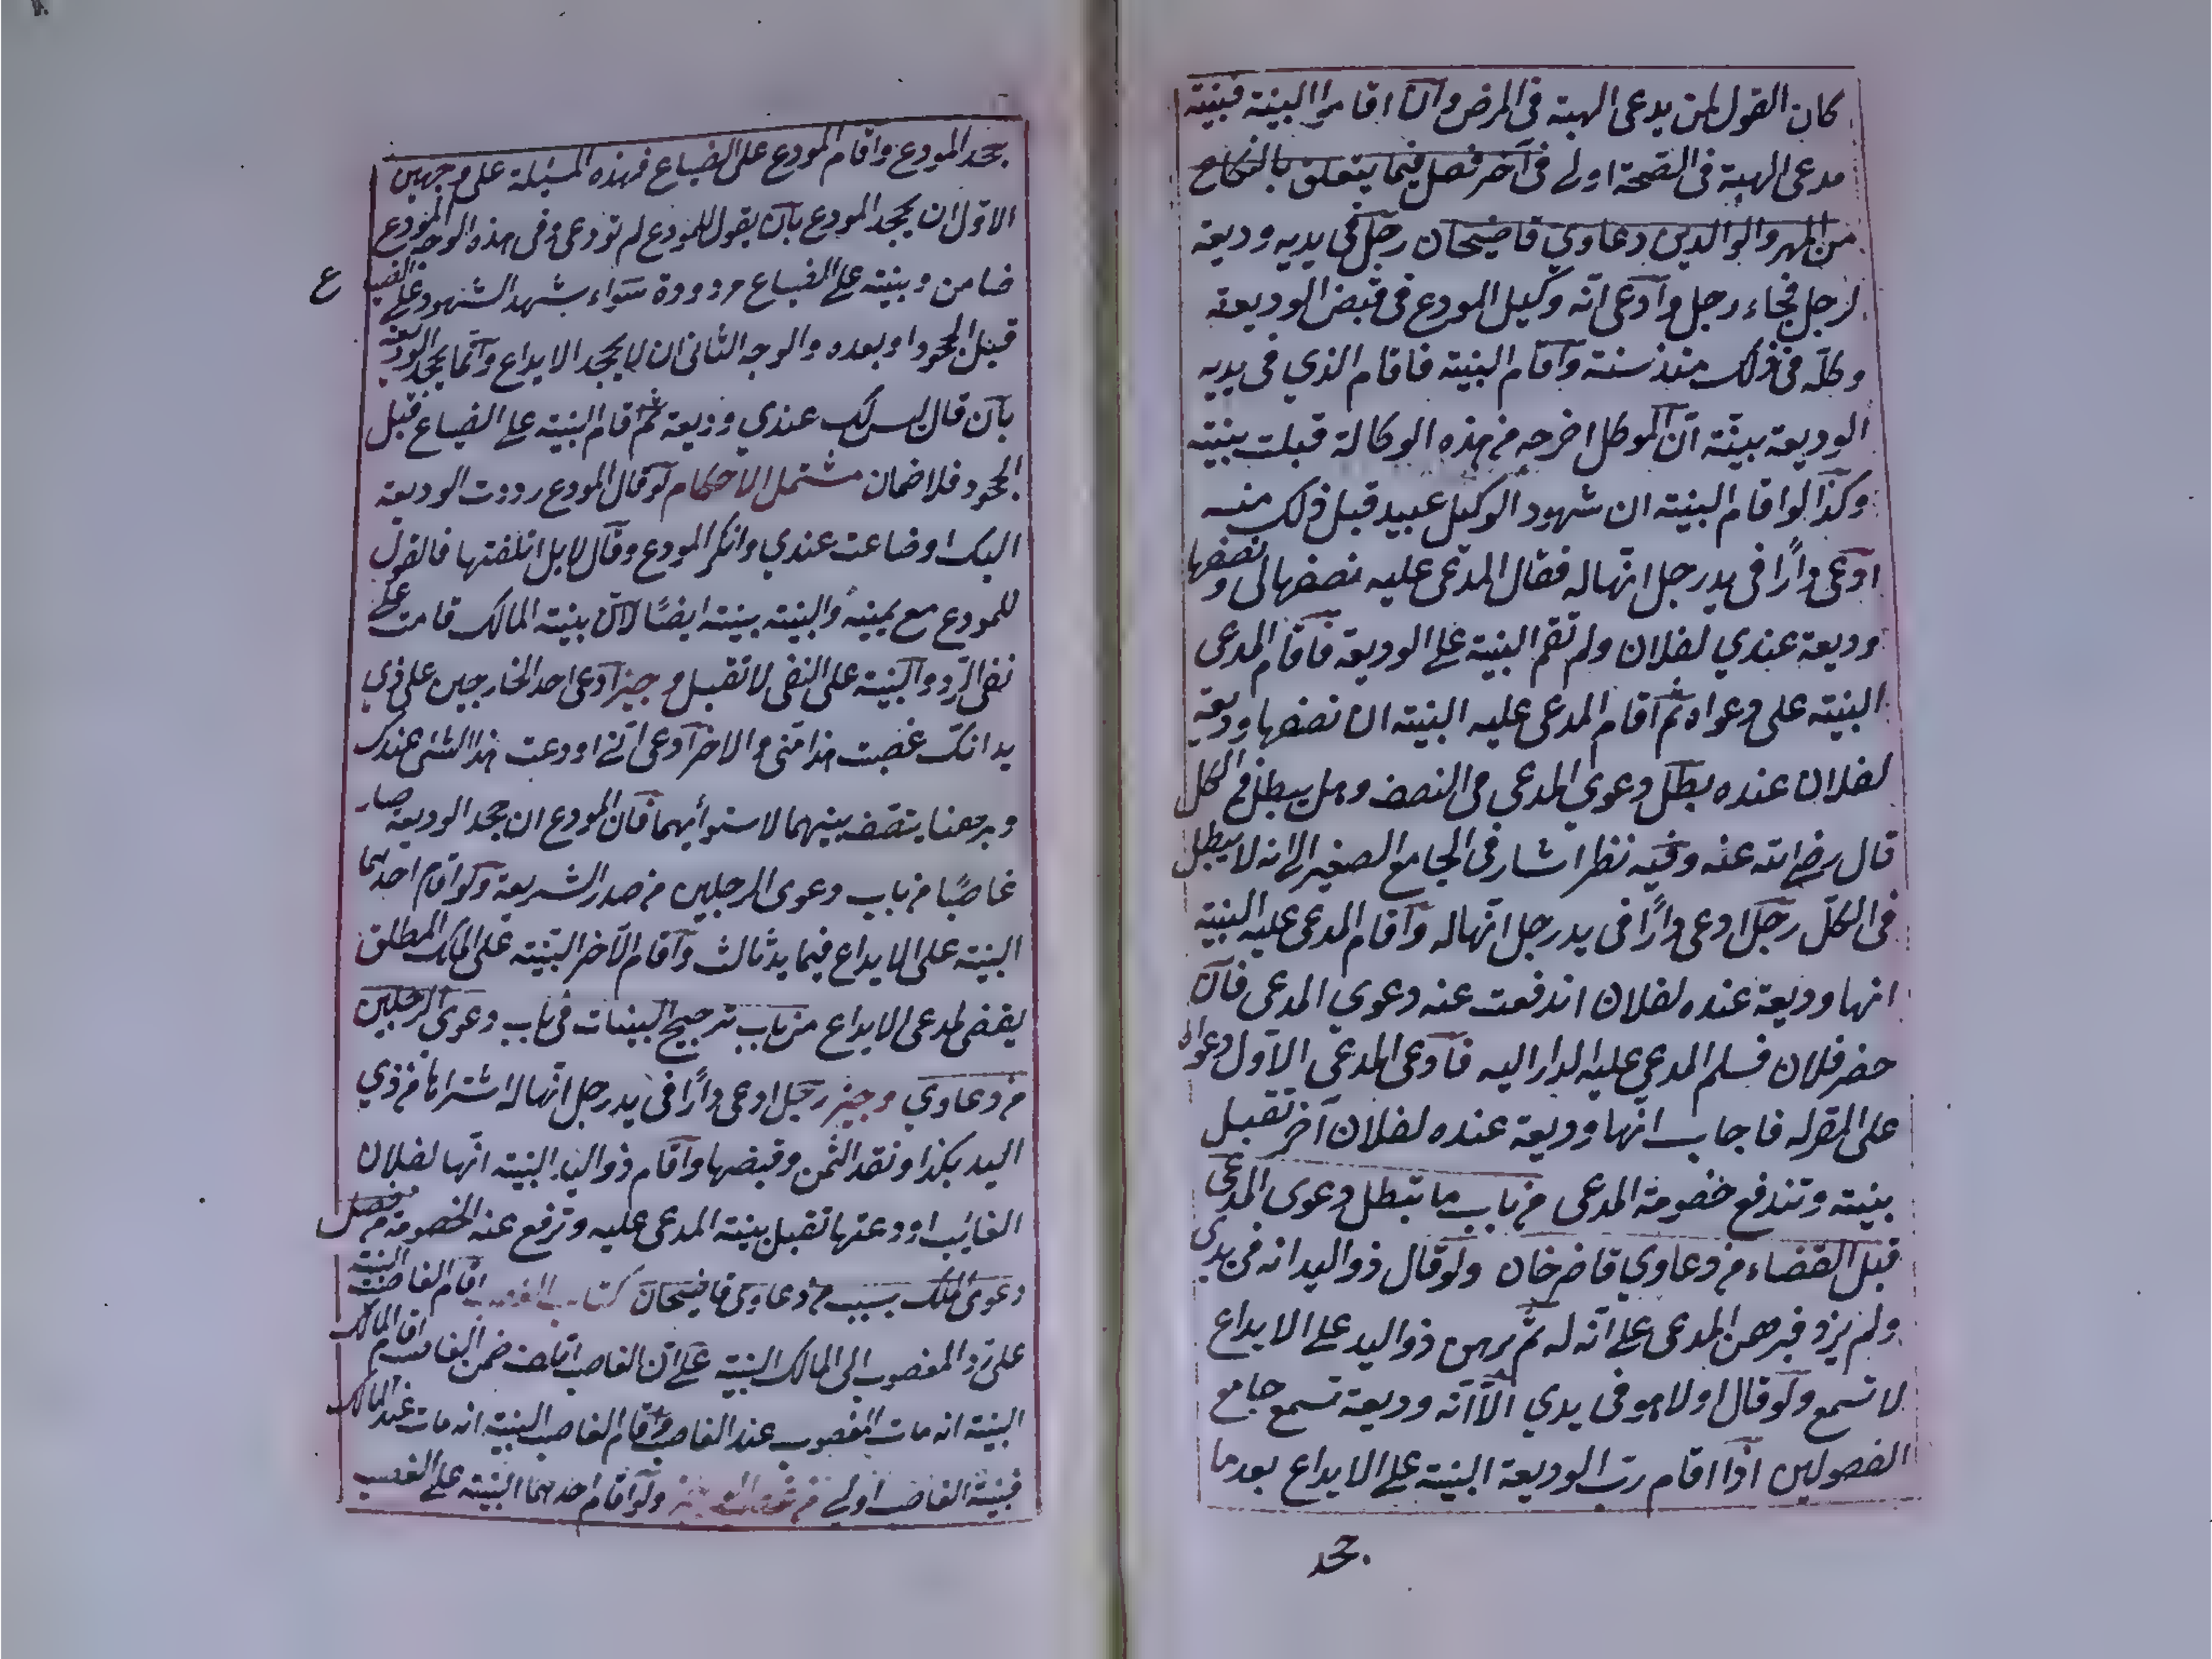 كان القول لمن يدعى الهبة فى المرض وان اقاموا البينة فبينة
مدعى الهبة فى الصحة اولى فى آخر فصل فيما يتعلق بالنكاح
من المهر والوالدين دعاوي قاضيخان رجل فى يديه وديعة
لرجل فجاء رجل وادعى انه وكيل المودع فى قبض الوديعة
وكله فى ذلك منذ سنة واقام البينة فاقام الذي فى يديه
الوديعة بينة ان الموكل اخرجه من هذه الوكالة قبلت بينته
وكذا لو اقام البينة ان شهود الوكيل عبيد قبل ذلك منه
ادعى دارًا فى يد رجل انها له فقال المدعى عليه نصفها لى ونصفها
وديعة عندي لفلان ولم تقم البينة على الوديعة فاقام المدعى
البينة على دعواه ثم اقام المدعى عليه البينة ان نصفها وديعة
لفلان عنده بطل دعوي المدعى فى النصف وهل يبطل فى الكل
قال رضى الله عنه وفيه نظر اشار فى الجامع الصغير الى انه لا يبطل
فى الكل رجل ادعى دارًا فى يد رجل انها له واقام المدعى عليه البينة
انها وديعة عنده لفلان اندفعت عنه دعوي المدعى فان
حضر فلان فسلم المدعى عليه الدار اليه فادعى المدعى الاول دعواه
على المقرله فاجاب انها وديعة عنده لفلان آخر تقبل
بينته وتندفع خصومة المدعى من باب ما تبطل دعوى المدعى
قبل القضاء من دعاوي قاضى خان ولو قال ذو اليد انه فى يدى
ولم يزد فبرهن المدعى على انه له ثم برهن ذو اليد على الايداع
لا تسمع ولو قال اولا هو فى يدي الا انه وديعة تسمع جامع
الفصولين اذا اقام رب الوديعة البينة على الايداع بعد ما
جحد
جحد المودع واقام المودع على الضياع فهذه المسئلة على وجهين
الاول ان يجحد المودع بان يقول للمودع لم تودعنى وفى هذه الوجه المودع
ضامن وبينته على الضياع مردودة سواء شهد الشهود على الضياع
قبل الجحود او بعده والوجه الثانى ان لا يجحد الايداع وانما يجحد الوديعة
بان قال ليس لك عندي وديعة ثم اقام البينة على الضياع قبل
الجحود فلا ضمان مشتمل الاحكام لو قال المودع رددت الوديعة
اليك او ضاعت عندي وانكر المودع وقال لا بل اتلفتها فالقول
للمودع مع يمينه والبينة بينته ايضًا لان بينة المالك قامت على
نفى الرد والبينة على النفى لا تقبل وجيز ادعى احد الخارجين على ذي
يد انك غصبت هذا منى والاخر ادعى انى اودعت هذا الشئ عندك
وبرهنا ينصف بينهما لاستوائهما فان المودع ان جحد الوديعة صار
غاصبًا من باب دعوى الرجلين من صدر الشريعة ولو اقام احدهما
البينة على الايداع فيما يد ثالث واقام الآخر البينة على الملك المطلق
يقضى لمدعى الايداع من باب ترجيح البينات فى باب دعوى الرجلين
من دعاوي وجيز رجل ادعى دارًا فى يد رجل انها له اشتراها من ذي
اليد بكذا ونقد الثمن وقبضها واقام ذو اليد البينة انها لفلان
الغائب اودعتها تقبل بينة المدعى عليه وترفع عنه الخصومة من فصل
دعوى الملك بسبب من دعاوى قاضيخان كتاب الغصب اقام الغاصب البينة
على رد المغصوب الى المالك البينة على ان الغاصب اتلف ضمن الغاصب اقام المالك
البينة انه مات المغصوب عند الغاصب واقام الغاصب البينة انه مات عند المالك
فبينة الغاصب اولى من ولو اقام احدهما البينة على الغصب